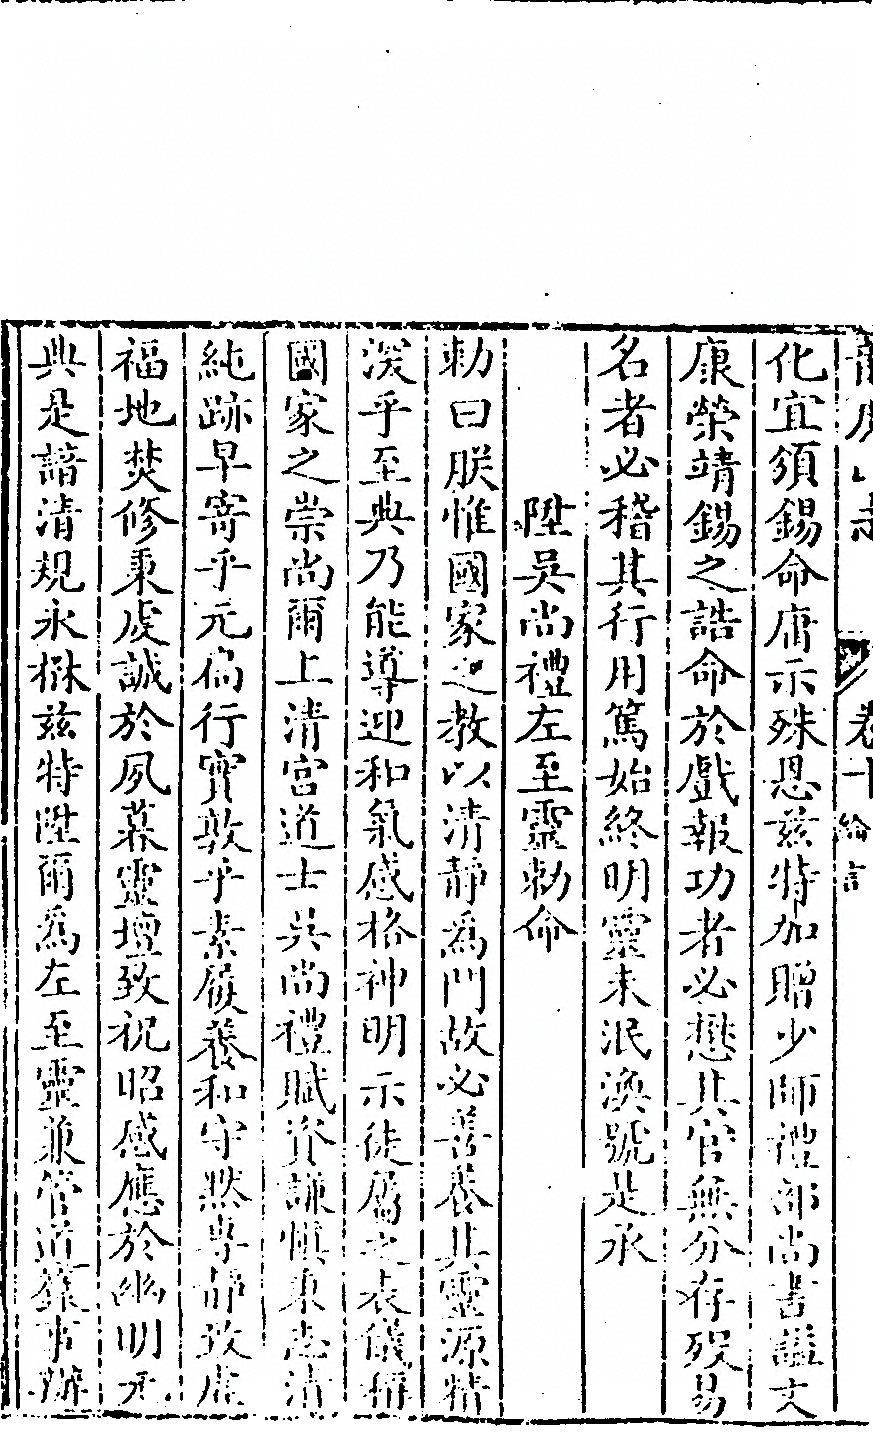 龍虎山志 卷十 綸言
化宜須錫命庸示殊恩茲特加贈少師禮部尚書謚文
康榮靖錫之誥命於戲報功者必懋其官無分存歿易
名者必稽其行用篤始終明靈未泯渙號是承
陞吳尚禮左至靈勅命
勅曰朕惟國家之教以清靜為門故必善養其靈源精
深乎至典乃能導迎和氣感格神明示徒屬之表儀稱
國家之崇尚爾上清宮道士吳尚禮賦資謙慎秉志清
純跡早寄乎元扃行實敦乎素履養和守默專靜致虛
福地焚修秉虔誠於夙暮靈壇致祝昭感應於幽明元
典是諳清規永楙茲特陞爾為左至靈兼管道籙事辦